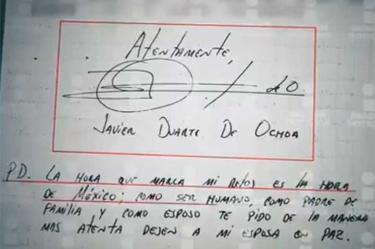 Atentamente,
d O.
Javier Duarte De Ochoa
P.D. La hora que marca mi reloj es la hora
de México; como ser humano, como padre de
familia y como esposo te pido de la manera
mas atenta dejen a mi esposa en paz.